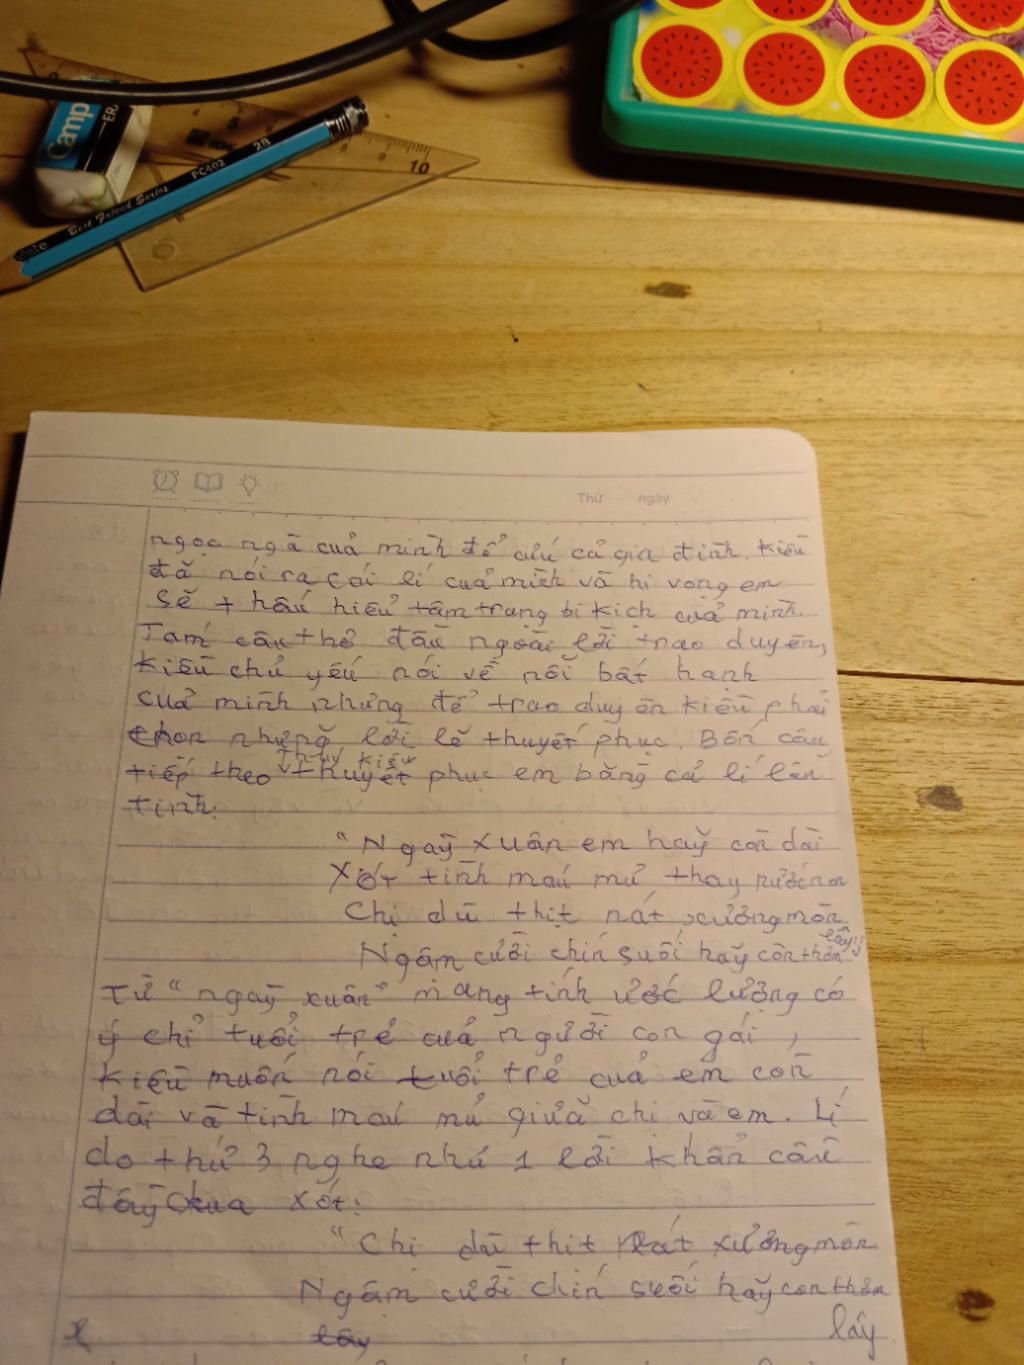 Camp
ER
PC402 2B
Best Friend Series
5
8
9
10
Thứ ngày
ngọc ngà của mình để cứu cả gia đình. Kiều
đã nói ra cái lí của mình và hi vọng em
sẽ thấu hiểu tâm trạng bi kịch của mình.
Tám câu thơ đầu ngoài lời trao duyên,
Kiều chủ yếu nói về nỗi bất hạnh
của mình nhưng để trao duyên Kiều phải
chọn những lời lẽ thuyết phục. Bốn câu
Thúy Kiều
tiếp theo thuyết phục em bằng cả lí lẫn
tình:
"Ngày xuân em hãy còn dài
Xót tình máu mủ thay nước non
Chị dù thịt nát xương mòn
Ngậm cười chín suối hãy còn thơm
lây"
Từ "ngày xuân" mang tính ước lượng có
ý chỉ tuổi trẻ của người con gái,
Kiều muốn nói tuổi trẻ của em còn
dài và tình máu mủ giữa chị và em. Lí
do thứ 3 nghe như 1 lời khẩn cầu
đầy chua xót:
"Chị dù thịt nát xương mòn
Ngậm cười chín suối hãy còn thơm
lây